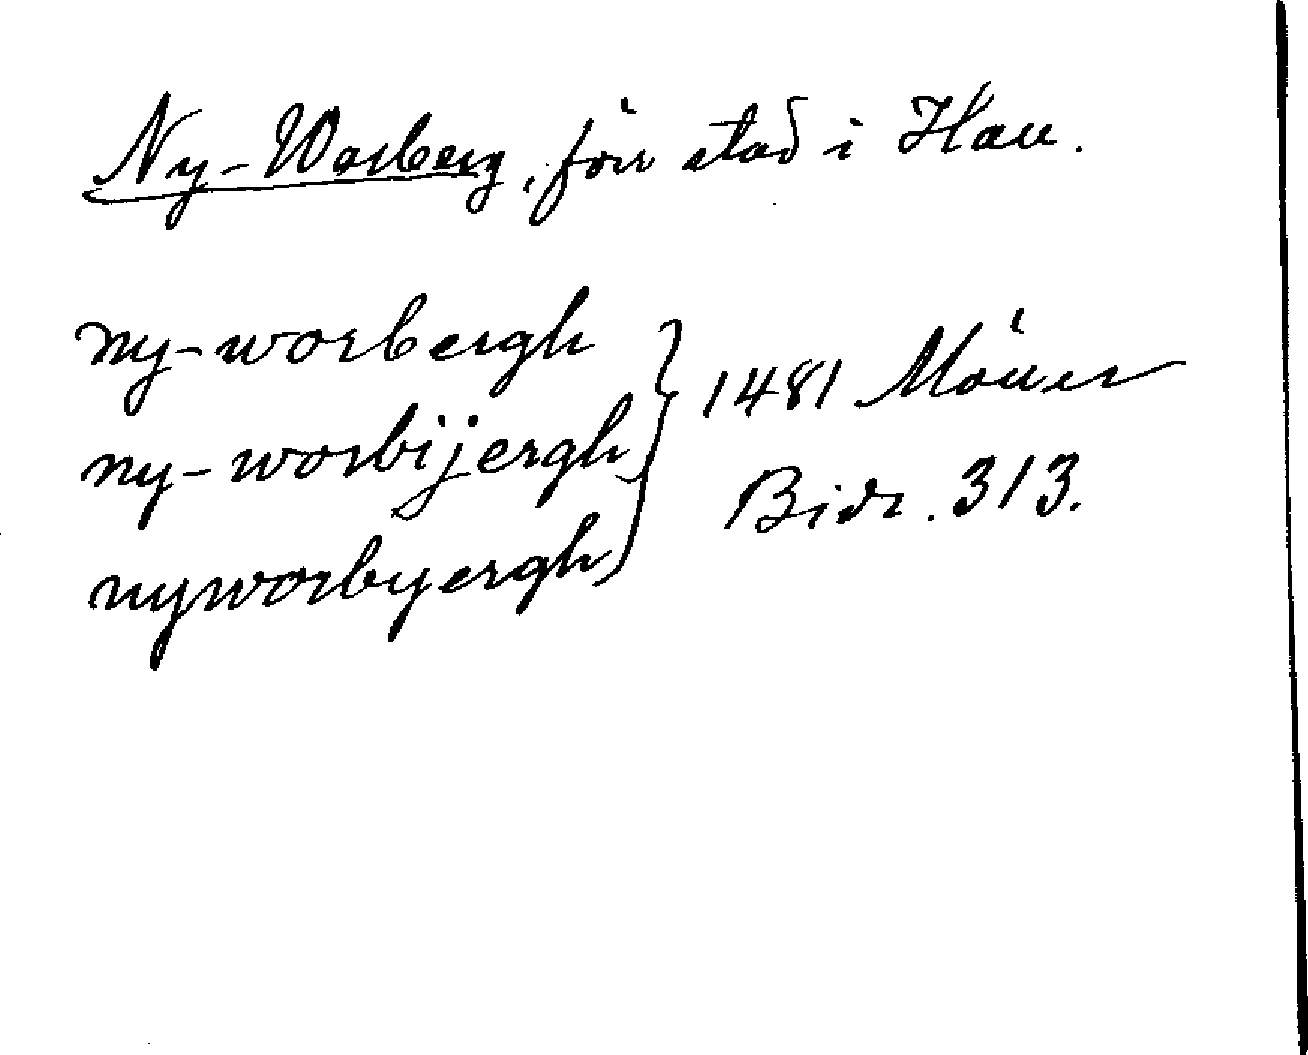 Ny-Warberg, förr stad i Hall.
ny-worbergh
ny-worbijergh } 1481 Möller
nyworbyergh Bidr. 313.